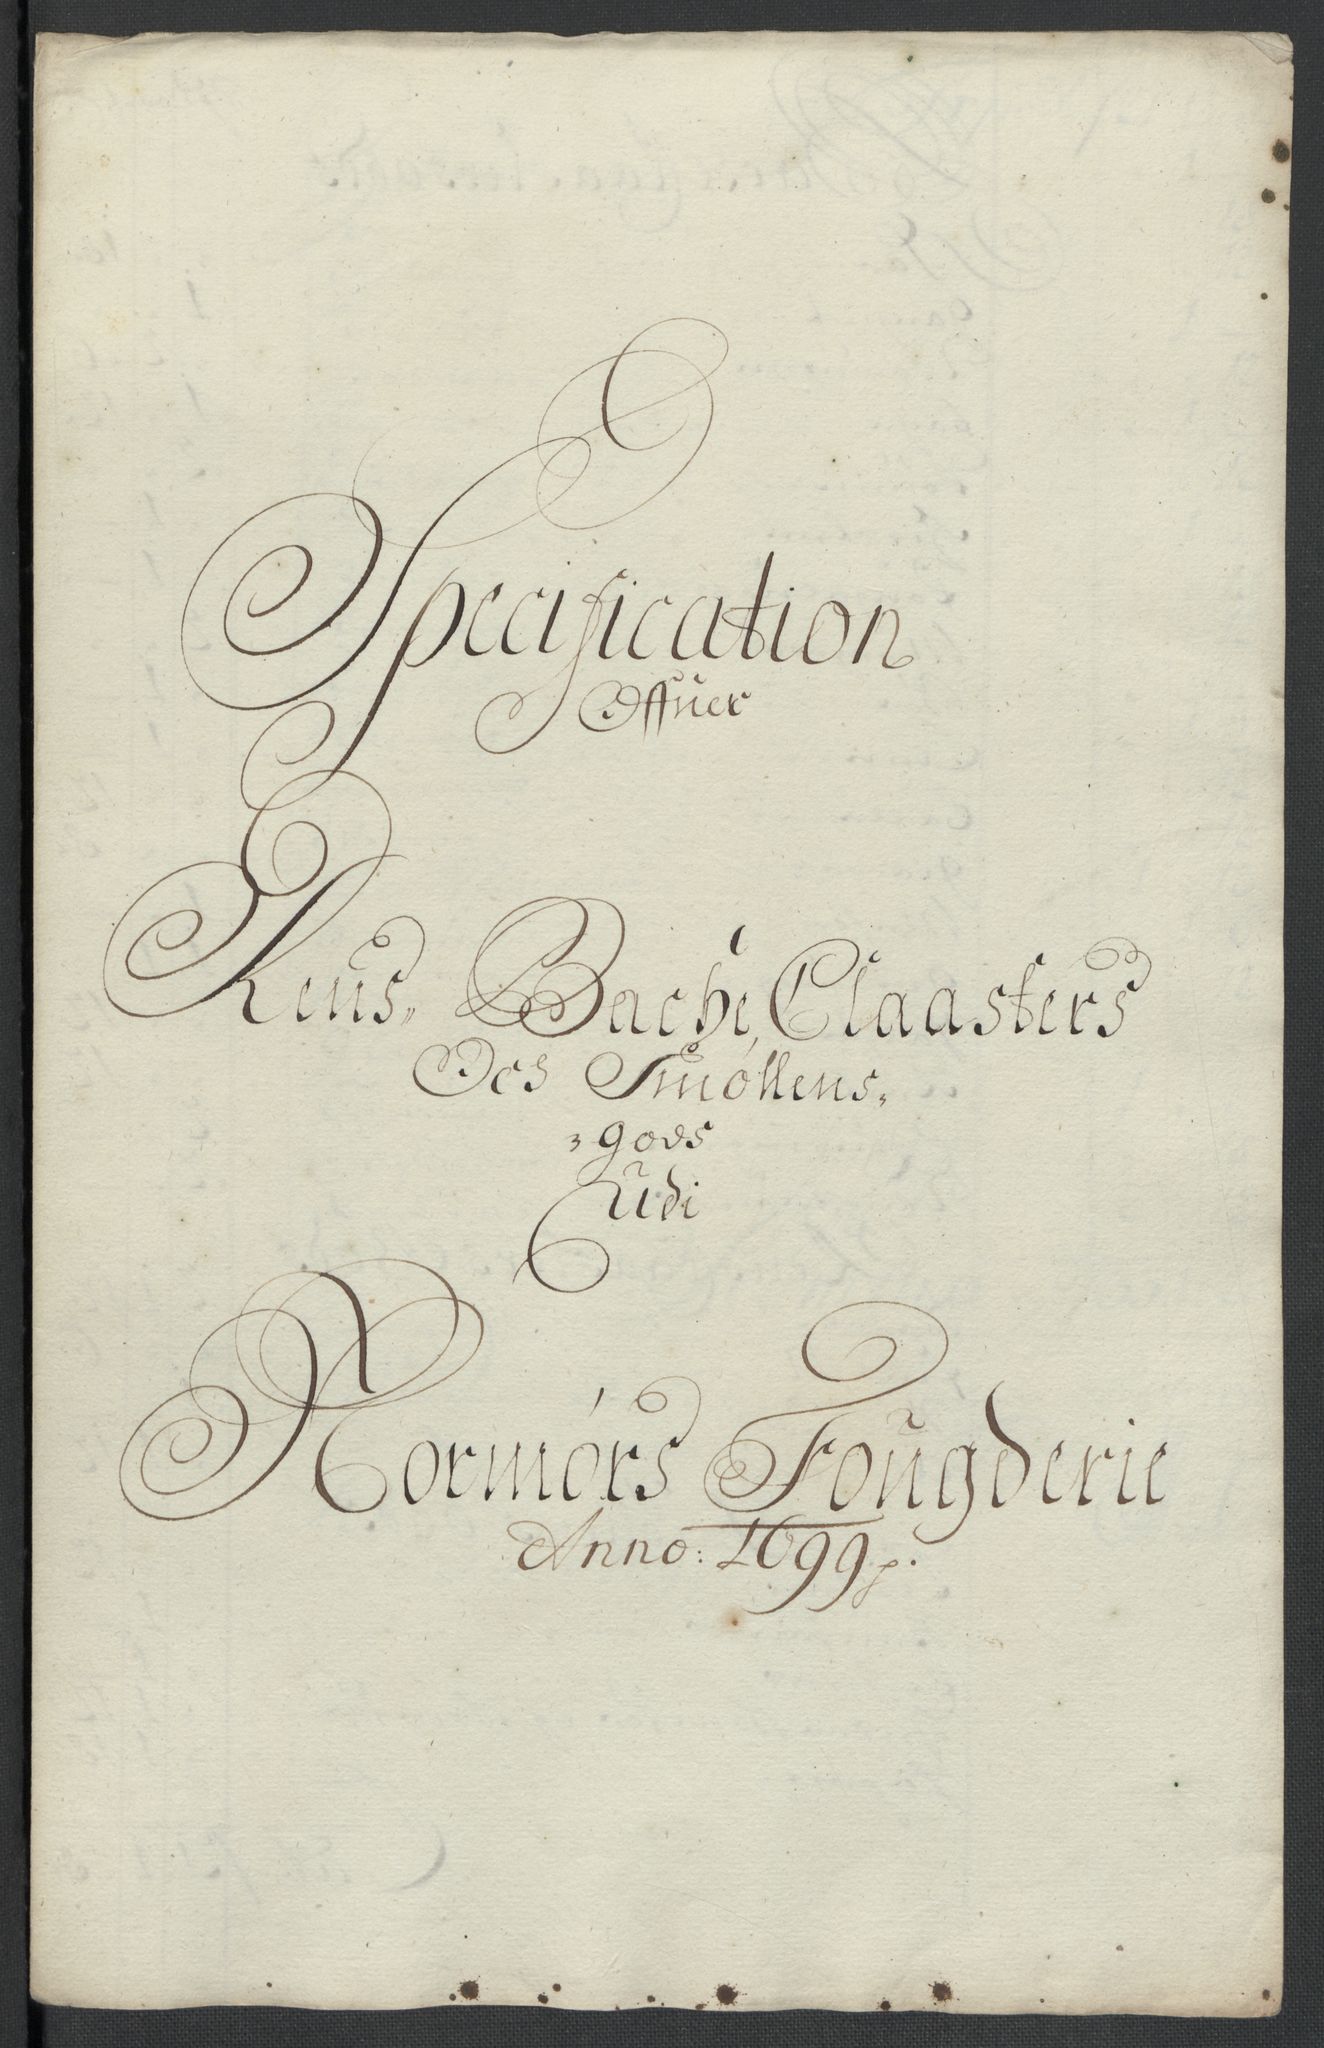 Specification
Offuer
Reus, Bache, Claasters
Och Smöllens,
gods
Udi
Normörs Fougderie
Anno: 1699